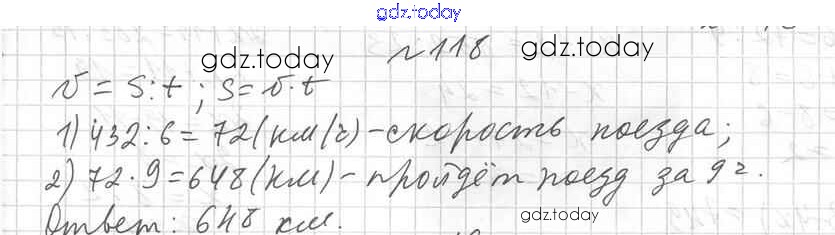 gdz.today
gdz.today №118 gdz.today
v = s:t ; s = v·t
1) 432:6=72(км/ч) - скорость поезда;
2) 72·9=648(км) - пройдёт поезд за 9 ч.
Ответ: 648 км. gdz.today